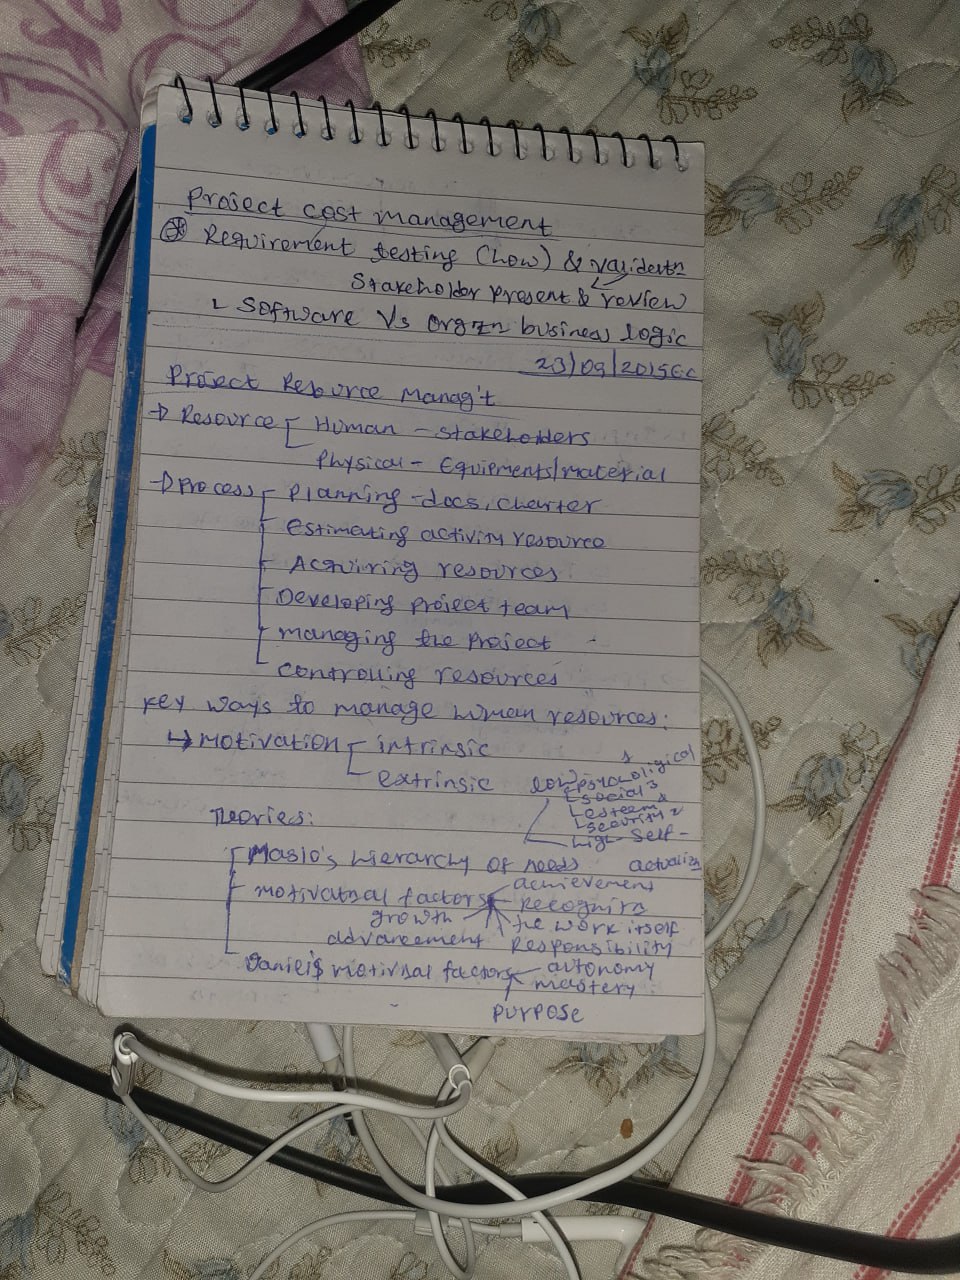 Project cost management
Requirement testing (how) & validatn
Stakeholder present & review
Software Vs orgzn business logic
23/09/2015 E.C
Project Resource Manag't
→ Resource Human - stakeholders
Physical - Equipments/material
→ Process Planning - docs, charter
Estimating activity resource
Acquiring resources
Developing project team
managing the project
controlling resources
Key ways to manage human resources:
↳ motivation intrinsic
extrinsic
Teories:
low psycological 1
social 3
esteem
security 2
high self-
actualizn
Maslo's hierarchy of needs
motivatnal factors achievement
Recognitn
growth the work itself
advancement Responsibility
Daniel's motivnal factors autonomy
mastery
purpose